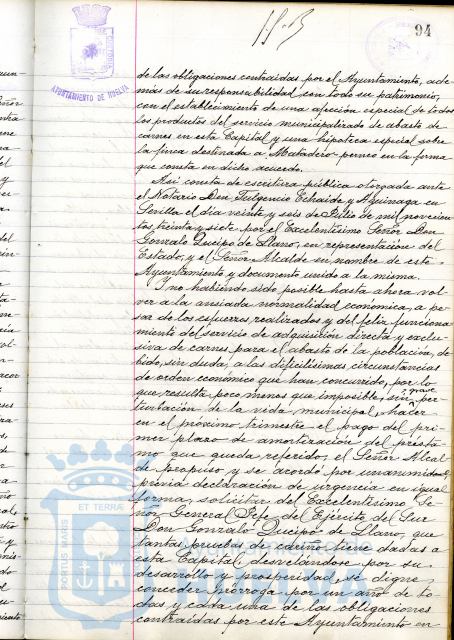 94
AYUNTAMIENTO DE HUELVA
de las obligaciones contraidas por el Ayuntamiento, ade-
más de su responsabilidad con todo su patrimonio,
con el establecimiento de una afección especial de todos
los productos del servicio municipalizado de abasto de
carnes en esta Capital y una hipoteca especial sobre
la finca destinada a Matadero perneo en la forma
que consta en dicho acuerdo.
Asi consta de escritura pública otorgada ante
el Notario Don Fulgencio Echaide y Aguinaga en
Sevilla el día veinte y seis de Julio de mil novecien-
tos treinta y siete por el Excelentísimo Señor Don
Gonzalo Queipo de Llano, en representación del
Estado, y el Señor Alcalde en nombre de este
Ayuntamiento y documento unido a la misma.
Y no habiendo sido posible hasta ahora vol-
ver a la ansiada normalidad económica, a pe-
sar de los esfuerzos realizados y del feliz funciona-
miento del servicio de adquisición directa y exclu-
siva de carnes para el abasto de la población, de-
bido, sin duda, a las dificilísimas circunstancias
de orden económico que han concurrido, por lo
que resulta poco menos que imposible, sin grave per-
turbación de la vida municipal, hacer
en el próximo trimestre el pago del pri-
mer plazo de amortización del présta-
mo que queda referido, el Señor Alcal-
de propuso y se acordó por unanimidad,
previa declaración de urgencia en igual
forma, solicitar del Excelentísimo Se-
ñor General Jefe del Ejército del Sur
Don Gonzalo Queipo de Llano, que
tantas pruebas de cariño tiene dadas a
esta Capital, desvelándose por su
desarrollo y prosperidad, se digne
conceder prórroga por un año de to-
das y cada una de las obligaciones
contraidas por este Ayuntamiento en
PORTUS MARIS ET TERRAE